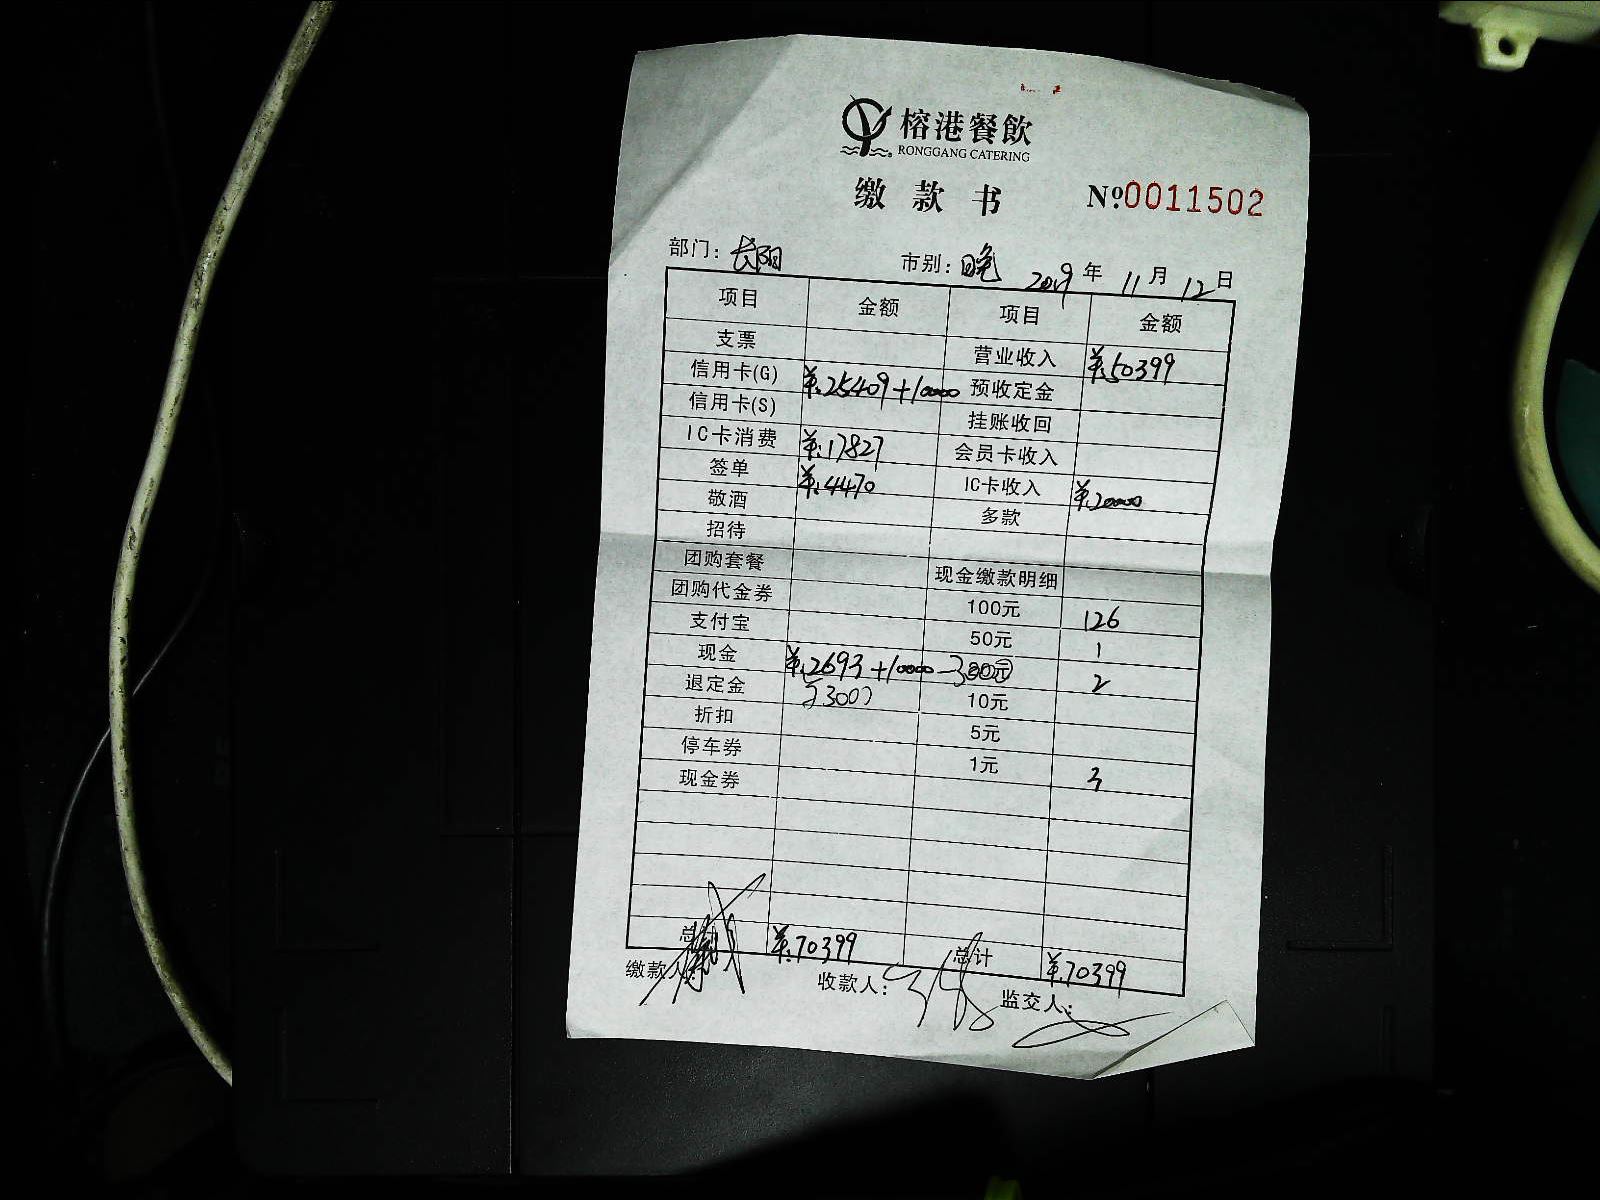 榕港餐飲
RONGGANG CATERING
缴款书 Nº0011502
部门: 长阳 市别: 晚 2019年11月12日
项目 金额 项目 金额
支票 营业收入 ¥:50399
信用卡(G) ¥:25409+10000 预收定金
信用卡(S) 挂账收回
IC卡消费 ¥:17827 会员卡收入
签单 ¥:4470 IC卡收入 ¥:20000
敬酒 多款
招待
团购套餐 现金缴款明细
团购代金券 100元 126
支付宝 50元 1
现金 ¥:2693+10000-300元 2
退定金 300 10元
折扣 5元
停车券 1元 3
现金券
总计 ¥:70399 总计 ¥:70399
缴款人: 收款人: 监交人: